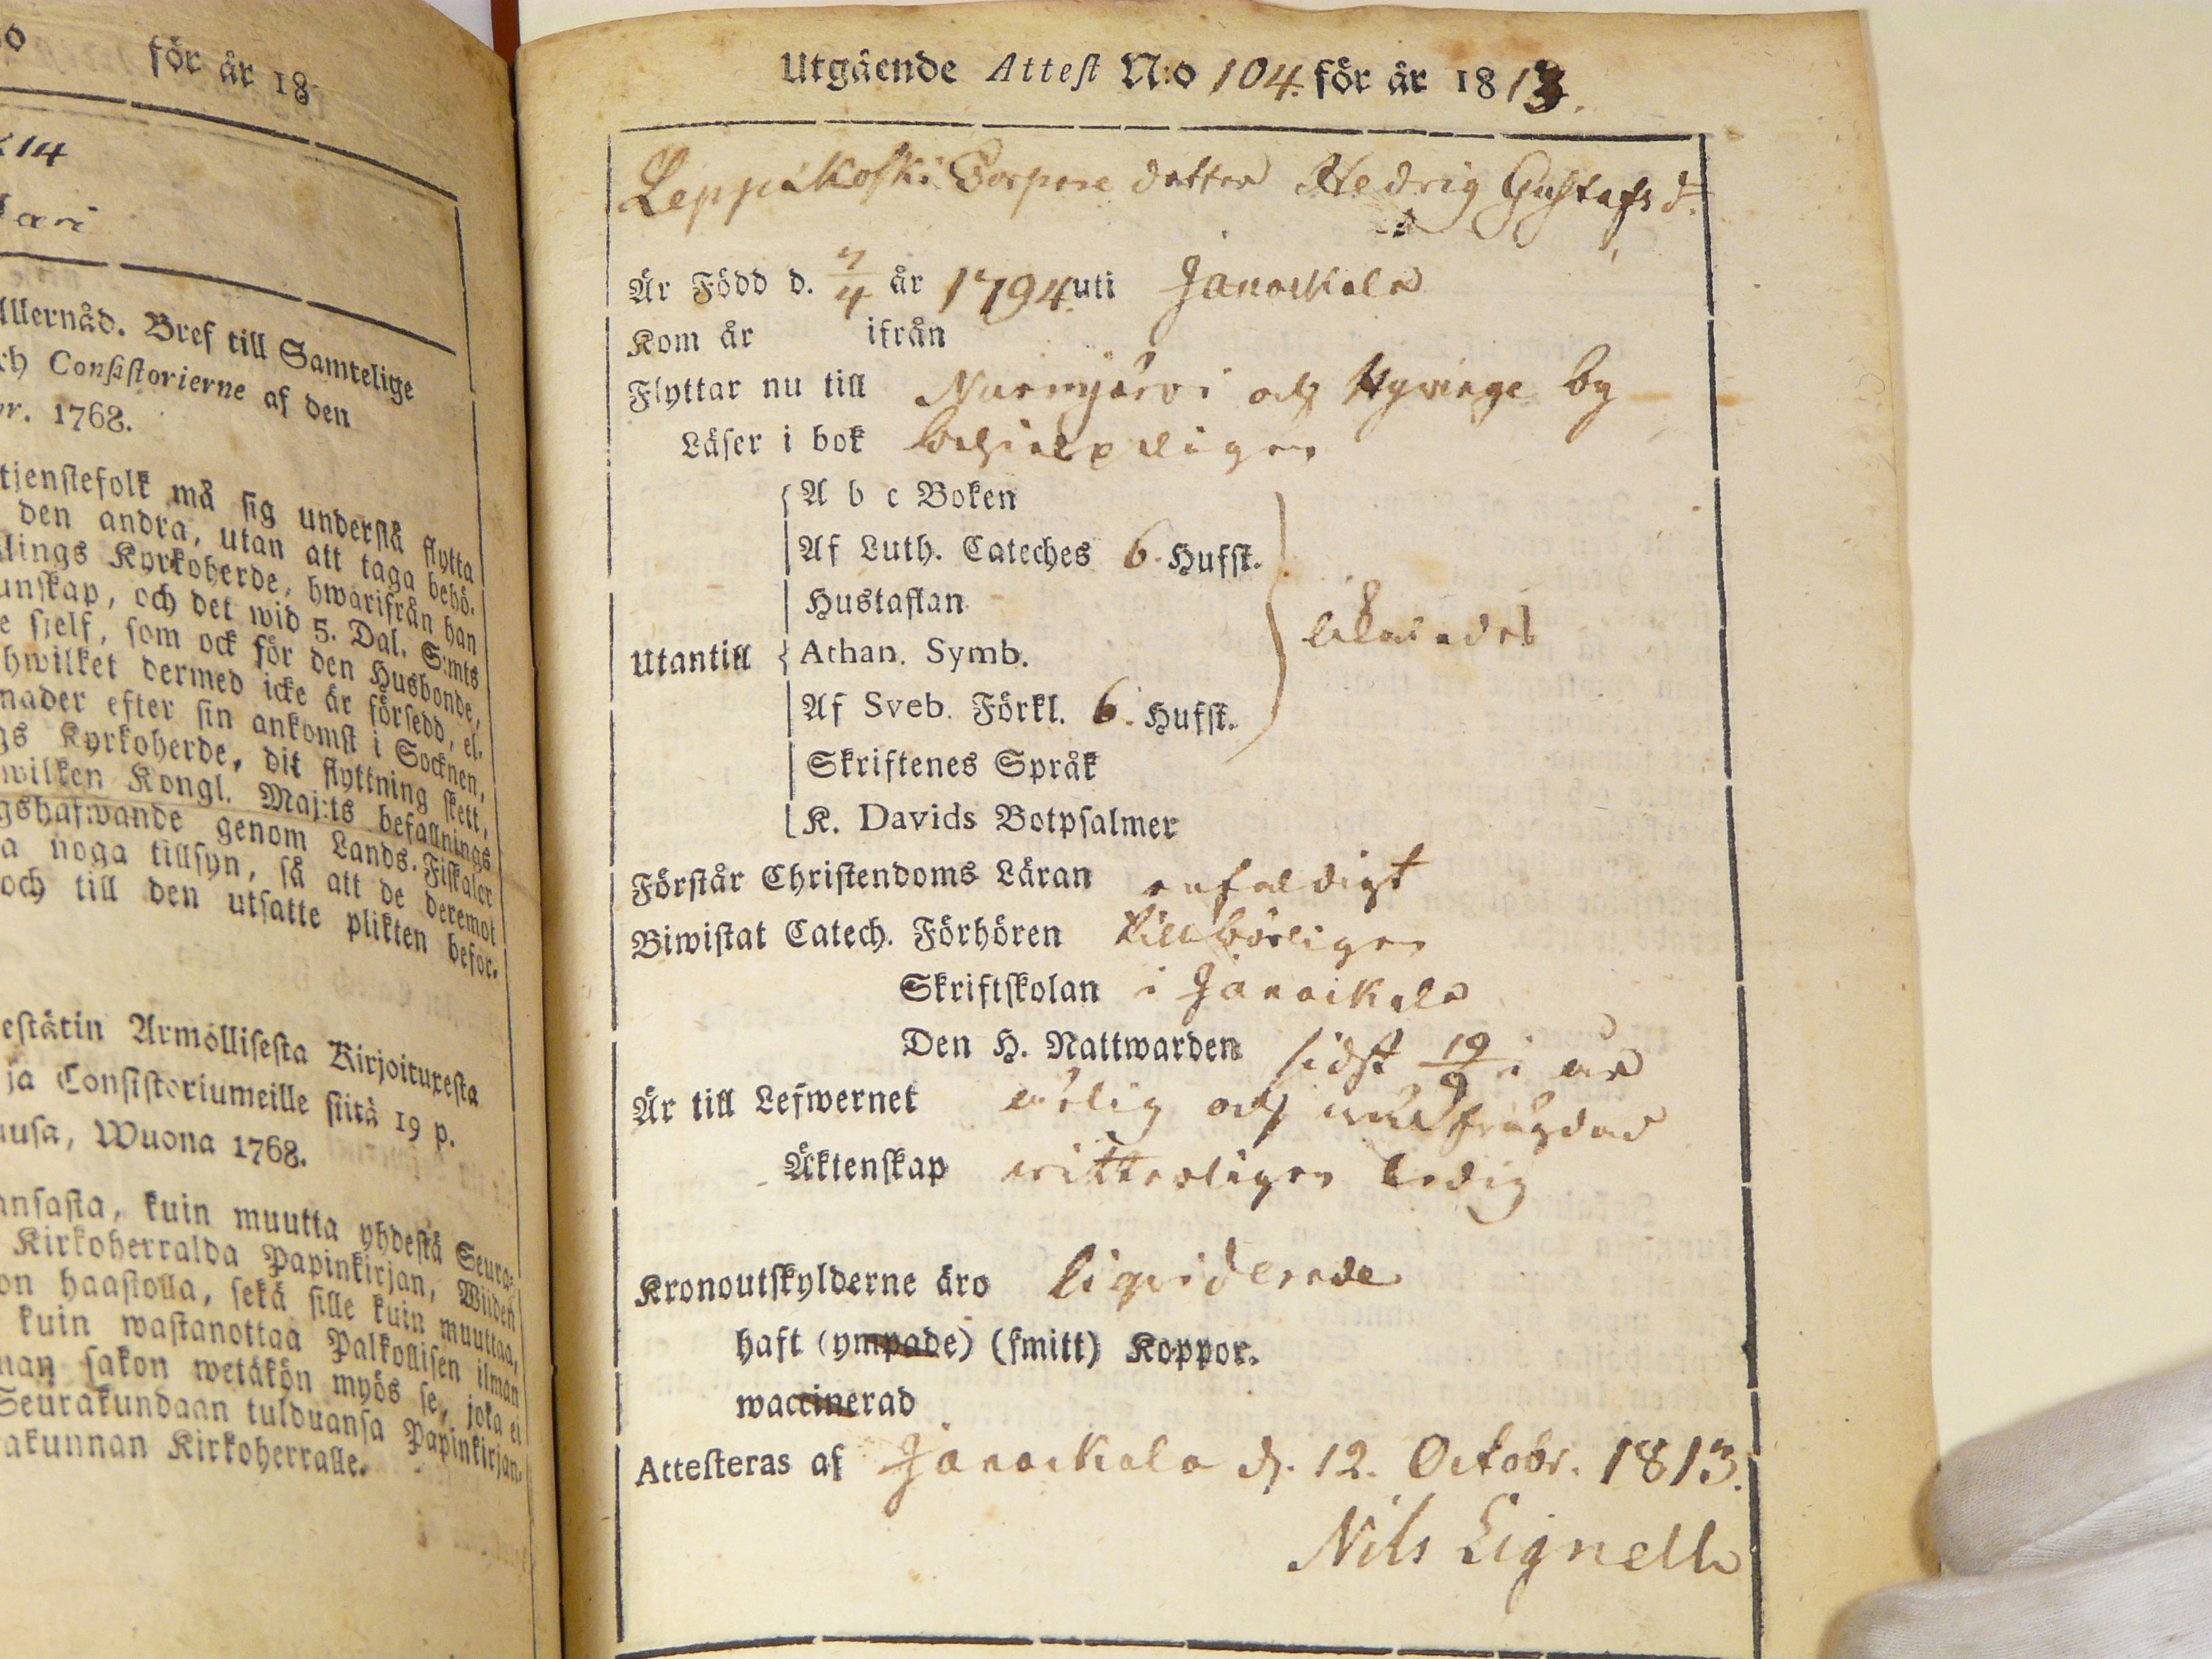 o för år 18
14
ari
Allernåd. Bref till Samtelige
ch Consistorierne af den
r. 1768.
tjenstefolk må sig understå flytta
den andra, utan att taga behö-
lings Kyrkoherde, hwarifrån han
unskap, och det wid 5. Dal. S:mts
e sjelf, som ock för den Husbonde,
hwilket dermed icke är försedd, el-
nader efter sin ankomst i Socknen,
gs Kyrkoherde, dit flyttning skett,
wilken Kongl. Maj:ts befallnings
gshafwande genom Lands-Fiskaler
a noga tillsyn, så att de deremot
och till den utsatte plikten befor-
estätin Armollisesta Kirjoituxesta
ja Consistoriumeille siitä 19 p.
usa, Wuona 1768.
ansasta, kuin muutta yhdestä Seura-
Kirkoherralda Papinkirjan, Wiiden
on haastolla, sekä sille kuin muuttaa,
kuin wastanottaa Palkollisen ilman
nan sakon wetäkön myös se, joka ei
Seurakundaan tulduansa Papinkirjan-
akunnan Kirkoherralle.
Utgående Attest N:o 104. för år 1813.
Leppäkoski Torpare dotter Hedvig Gustafs d:
Är Född d. 7/4 år 1794. uti Janackala
Kom år ifrån
Flyttar nu till Nurmjärvi och Hyvinge by
Läser i bok behjelpeligen
A b c Boken
Af Luth. Cateches 6. Hufst.
Hustaflan
Utantill Athan. Symb. likaledes
Af Sveb. Förkl. 6. Hufst.
Skriftenes Språk
K. Davids Botpsalmer
Förstår Christendoms Läran enfaldigt
Biwistat Catech. Förhören tillbörligen
Skriftskolan i Janackala
Den H. Nattwarden sidst 19/9 i år
Är till Lefwernet ärlig och
Äktenskap witterligen ledig
Kronoutskylderne äro liqviderade
haft (ympade) (smitt) Koppor.
waccinerad
Attesteras af Janackala d. 12. Octobr. 1813.
Nils Lignell